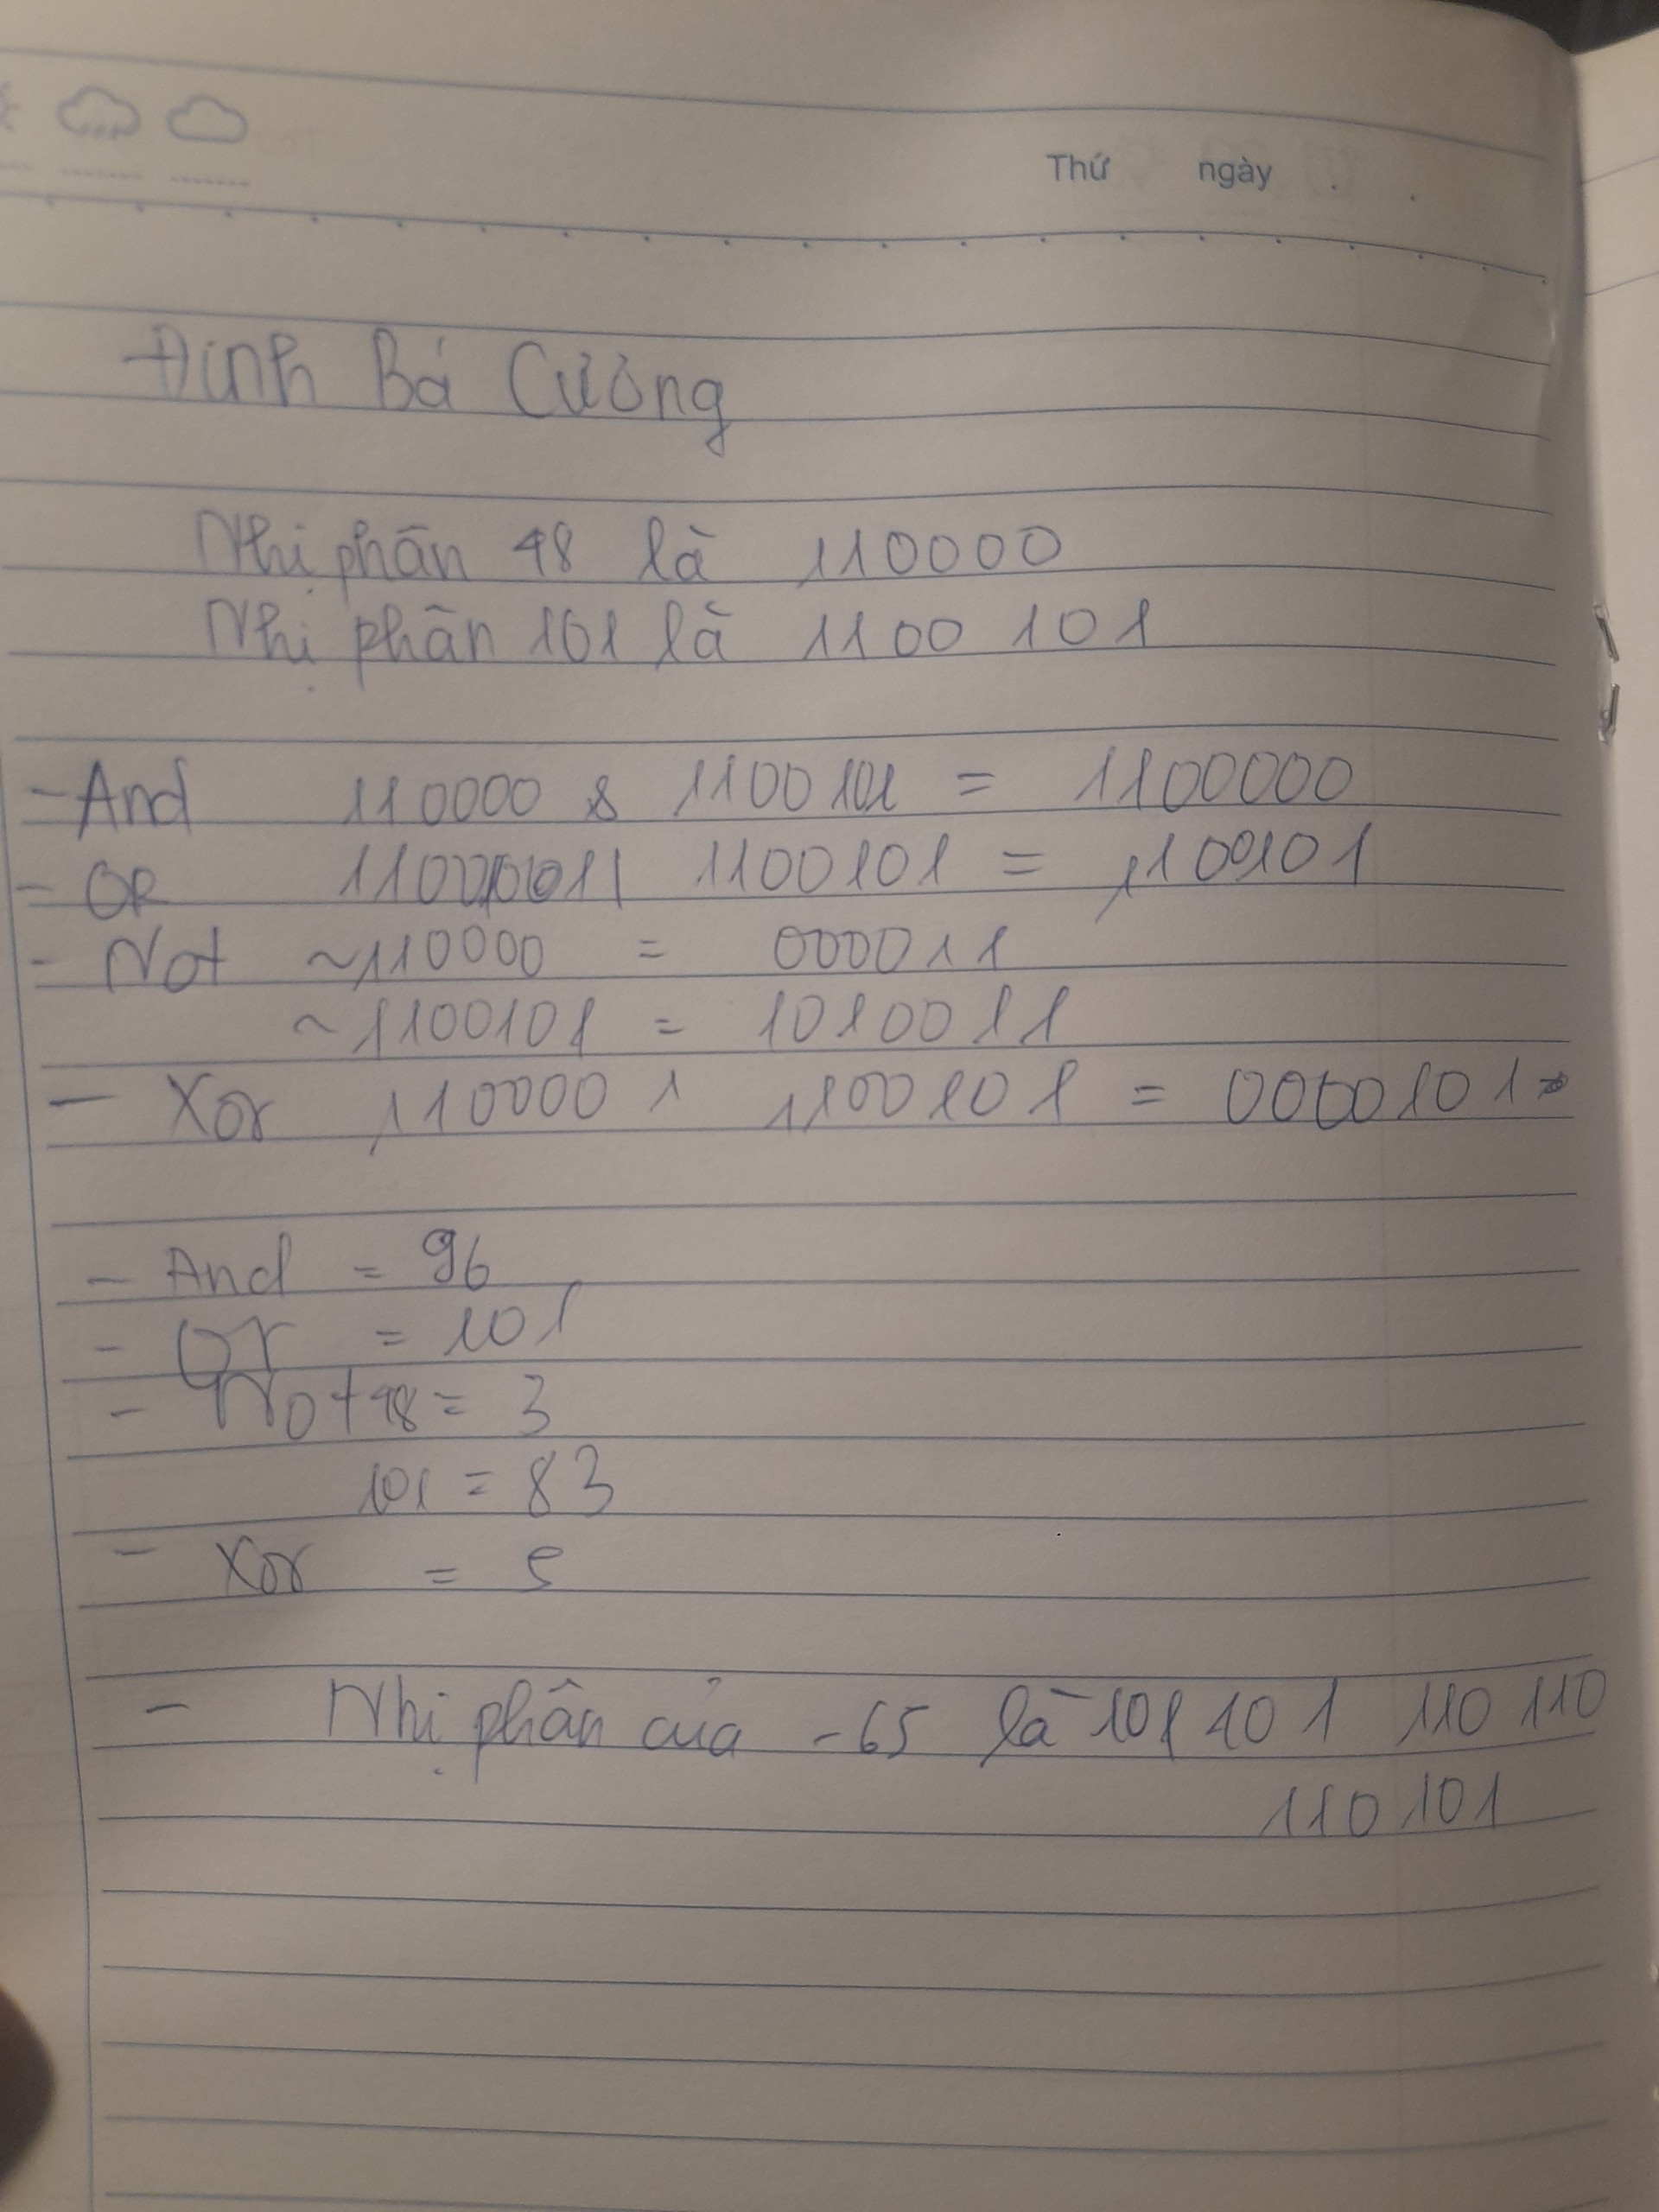 Thứ ngày . .
Đinh Bá Cường
Nhị phân 48 là 110000
Nhị phân 101 là 1100 101
- And 110000 & 1100101 = 1100000
- OR 1100101 = 1100101
- Not ~110000 = 000011
~1100101 = 1010011
- Xor 110000 ^ 1100101 = 0000101
- And = 96
- Or = 101
- Not 48 = 3
101 = 83
- Xor = 5
- Nhị phân của -65 là 101 101 110 110
110 101